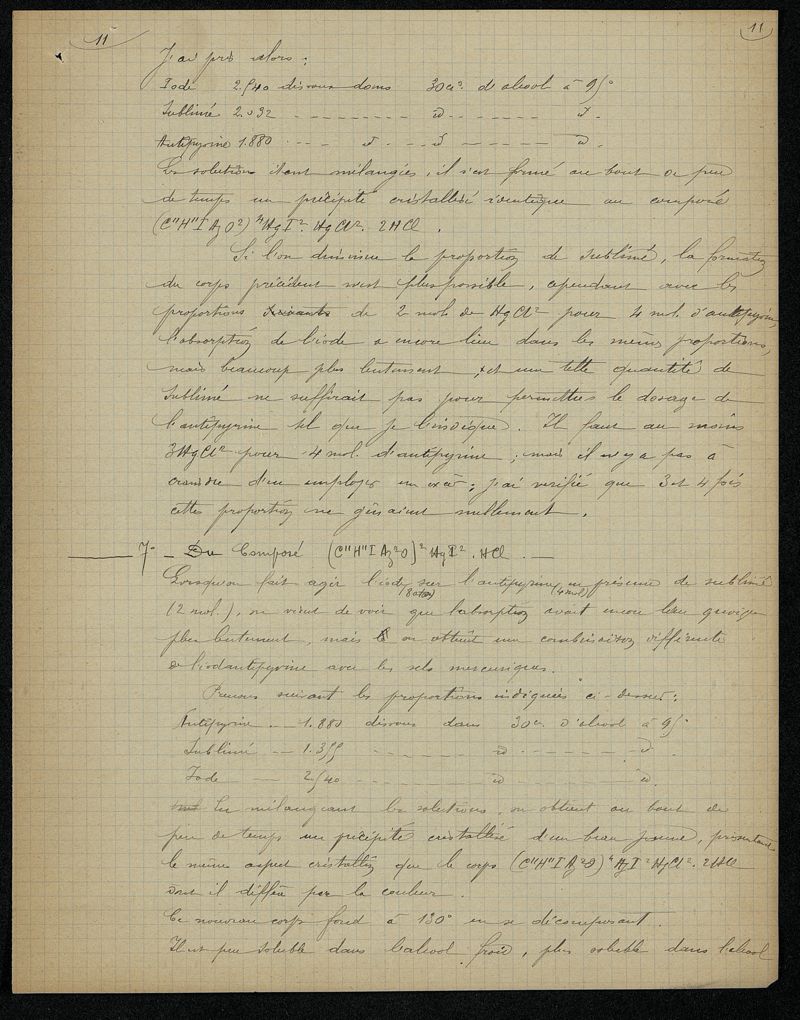 11 11
J'ai pris alors :
Iode 2.540 dissous dans 30cc. d'alcool à 95°
Sublimé 2.032 - - - - - - - - - id - - - - - - - id -
Antipyrine 1.880 - - - - id - - - id - - - - - - - id -
Les solutions étant mélangées, il s'est formé au bout de peu
de temps un précipité cristallisé identique au composé
(C11H11IAz2O)4HgI2.HgCl2.2HCl.
Si l'on diminue la proportion de sublimé, la formation
du corps précédent n'est plus possible, cependant avec les
proportions suivants de 2 mol. de HgCl2 pour 4 mol. d'antipyrine,
l'absorption de l'iode a encore lieu dans les mêmes proportions,
mais beaucoup plus lentement, et une telle quantité de
sublimé ne suffirait pas pour permettre le dosage de
l'antipyrine tel que je l'indique. Il faut au moins
3HgCl2 pour 4 mol. d'antipyrine ; mais il n'y a pas à
craindre d'en employer un excès ; j'ai vérifié que 3 et 4 fois
cette proportion ne gênaient nullement.
7° - Du Composé (C11H11IAz2O)2HgI2.HCl. -
Lorsqu'on fait agir l'iode (8 atos) sur l'antipyrine (4 mol) en présence de sublimé
(2 mol.), on vient de voir que l'absorption avait encore lieu quoique
plus lentement, mais on obtient une combinaison différente
de l'iodantipyrine avec les sels mercuriques.
Prenons suivant les proportions indiquées ci-dessus :
Antipyrine - - 1.880 dissous dans 30cc. d'alcool à 95°
Sublimé - - 1.355 - - - - - - - id - - - - - - - id -
Iode - - 2.540 - - - - - - - id - - - - - - - id -
En mélangeant les solutions, on obtient au bout de
peu de temps un précipité cristallisé d'un beau jaune, présentant
le même aspect cristallin que le corps (C11H11IAz2O)4HgI2HgCl2.2HCl
dont il diffère par la couleur.
Ce nouveau corps fond à 130° en se décomposant.
Il est peu soluble dans l'alcool froid, plus soluble dans l'alcool